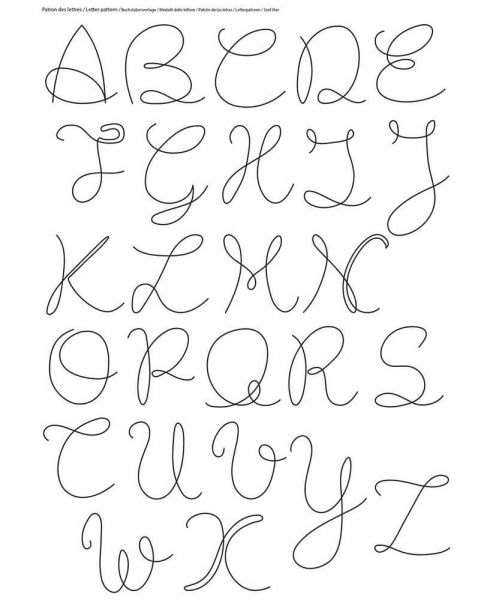 Patron des lettres / Letter pattern / Buchstabenvorlage / Modelli delle lettere / Patrón de las letras / Letterpatroon /
A B C D E
F G H I J
K L M N
O P Q R S
T U V Y Z
W X